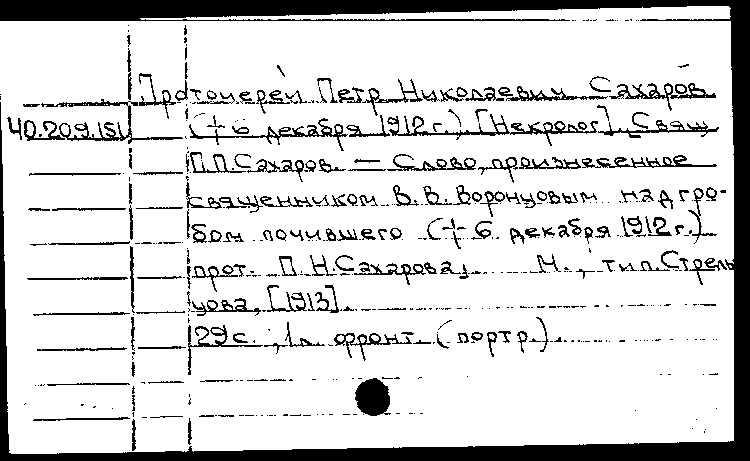 Протоиерей Петр Николаевич Сахаров
40.209.151 († 6 декабря 1912 г.) [Некролог]. Свящ.
П.П.Сахаров. — Слово, произнесенное
священником В.В.Воронцовым над гро-
бом почившего († 6 декабря 1912 г.)
прот. П.Н.Сахарова. М., тип.Стрель
цова, [1913].
29с., 1л. фронт. (портр.).